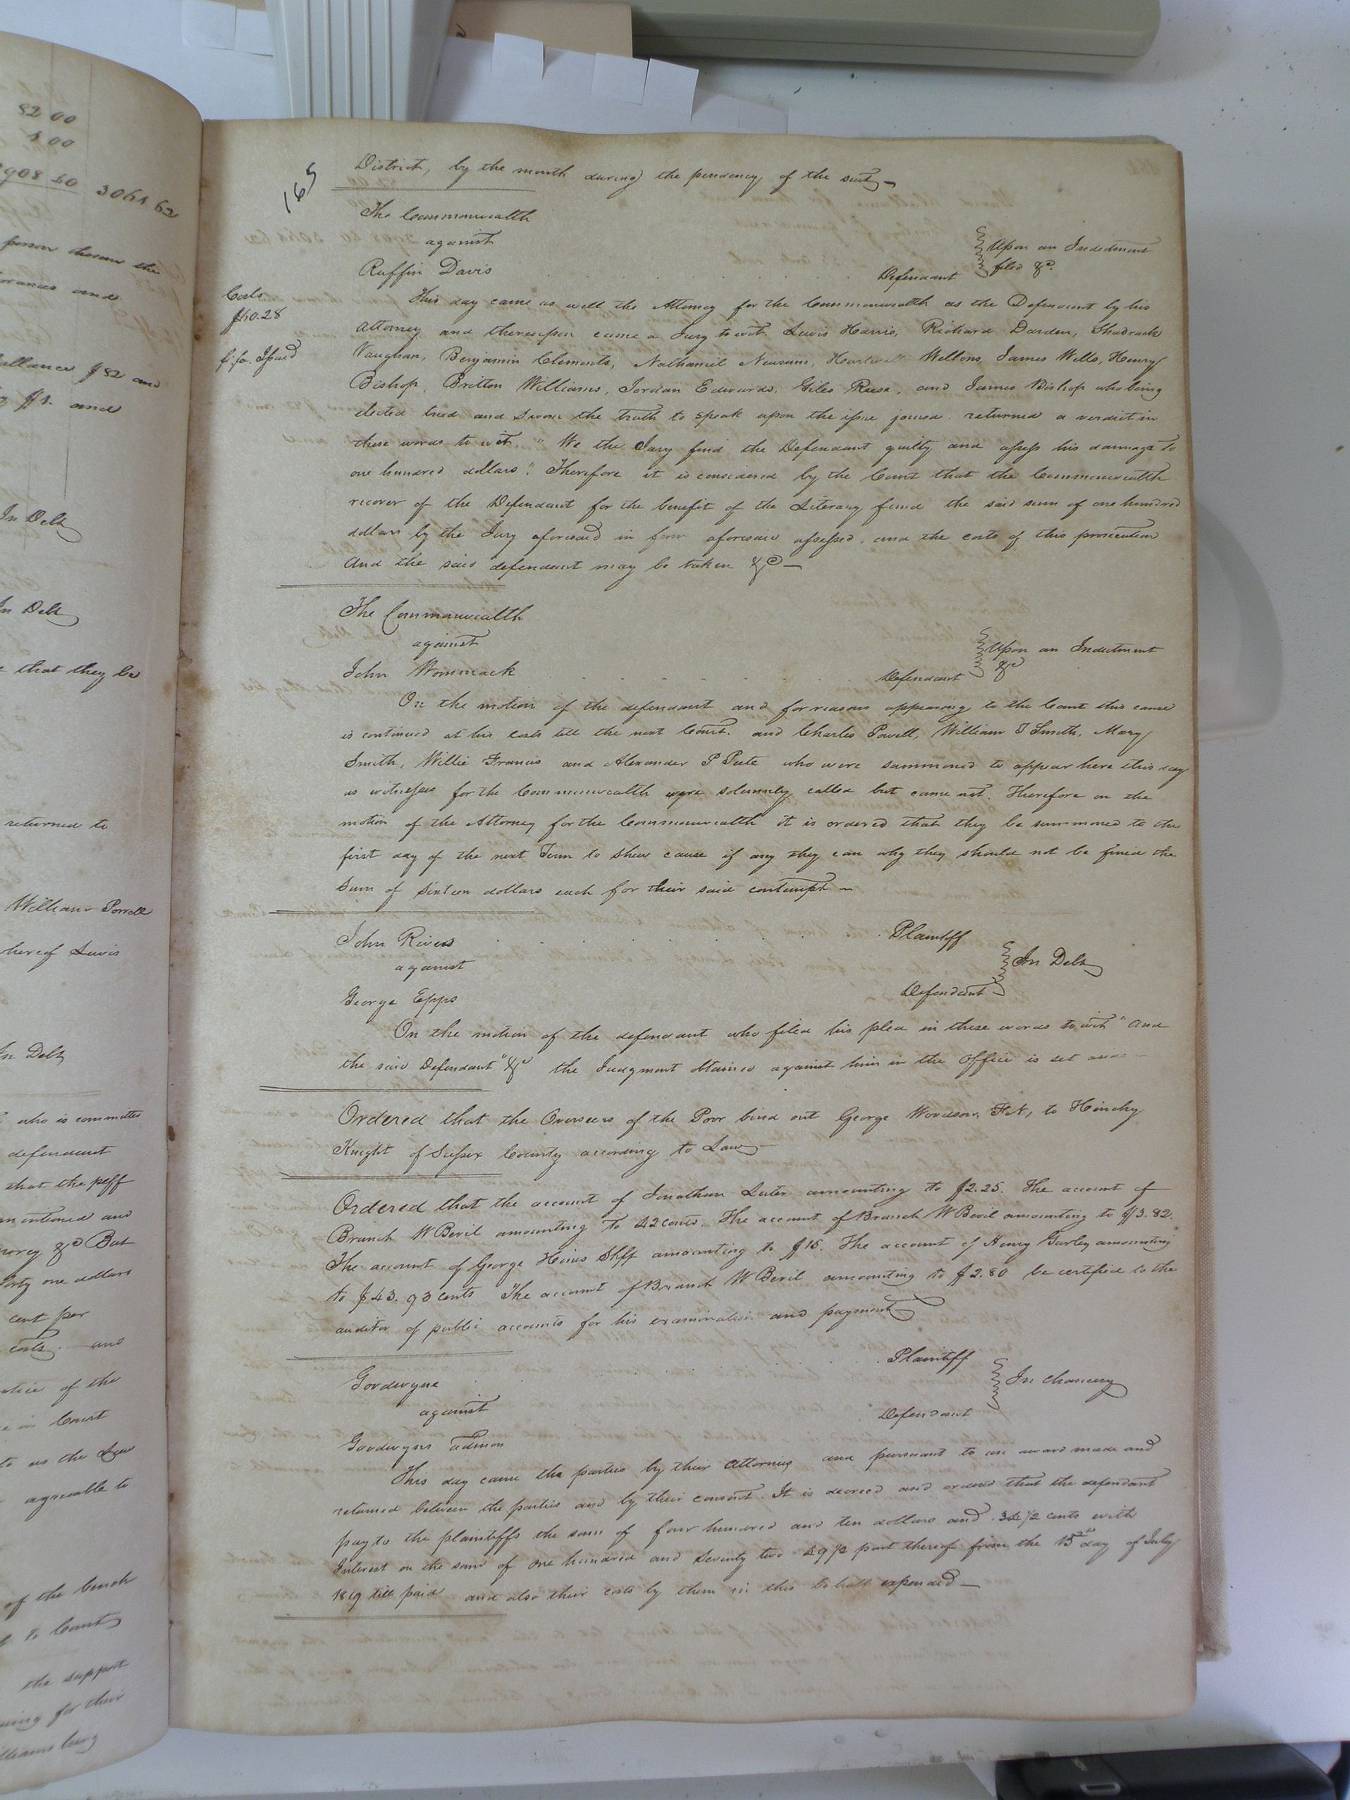 82 00
1 00
2908 50 3061 62
person
and
allance $82 and
$1. and
In Debt
In Debt
that they be
returned to
William
thereof Lewis
In Debt
who is committee
defendant
that the peff
mentioned and
mercy &c But
forty one dollars
cent per
costs. and
notice of the
in Court
to as the Law
agreeable to
of the bench
to Court
the support
for their
Williamsburg
165
District, by the month during the pendency of the suit,—
The Commonwealth
against
Ruffin Davis Defendant
Upon an Indictment
filed &c.
Costs
$40.28
This day came as well the Attorney for the Commonwealth as the Defendant by his
Attorney and thereupon came a Jury to wit Lewis Harris, Richard Darden, Shadrach
Vaughan, Benjamin Clements, Nathaniel Newsum, Hartwell Wellons, James Wells, Henry
Bishop, Britton Williams, Jordan Edwards, Giles Reese, and James Bishop who being
elected tried and sworn the truth to speak upon the issue joined returned a verdict in
these words to wit. "We the Jury find the Defendant guilty and assess his damage to
one hundred dollars". Therefore it is considered by the Court that the Commonwealth
recover of the Defendant for the benefit of the Literary fund the said sum of one hundred
dollars by the Jury aforesaid in form aforesaid assessed. and the costs of this prosecution
And the said defendant may be taken &c—
The Commonwealth
against
John Wommack Defendant
Upon an Indictment
&c
On the motion of the defendant and for reasons appearing to the Court this cause
is continued at his costs till the next Court. and Charles Powell, William T Smith, Mary
Smith, Willie Francis and Alexander P Peete who were summoned to appear here this day
as witnesses for the Commonwealth were solemnly called but came not. Therefore on the
motion of the Attorney for the Commonwealth it is ordered that they be summoned to the
first day of the next Term to shew cause if any they can why they should not be fined the
Sum of sixteen dollars each for their said contempt —
John Rives Plaintiff
against
George Epps Defendant
In Debt
On the motion of the defendant who filed his plea in these words to wit "And
the said Defendant" &c the Judgment obtained against him in the Office is set aside
Ordered that the Overseers of the Poor bind out George Woodson, to Hinchy
Knight of Sussex County according to Law
Ordered that the account of Jonathan Lester amounting to $2.25. The account of
Branch W Bevil amounting to 42 cents. The account of Branch W Bevil amounting to $3.82.
The account of George Hines Shff amounting to $15. The account of Henry Gurley amounting
to $43.93 cents The account of Branch W Bevil amounting to $2.80 be certified to the
auditor of public accounts for his examination and payment
Goodwyne Plaintiff
against
Goodwyns admon Defendant
In Chancery
This day came the parties by their Attornies and pursuant to an award made and
returned between the parties and by their consent. It is decreed and ordered that the defendant
pay to the plaintiffs the sum of four hundred and ten dollars and 34 1/2 cents with
Interest on the sum of one hundred and seventy two 49 1/2 part thereof from the 15th day of July
1819 till paid and also their costs by them in this behalf expended—